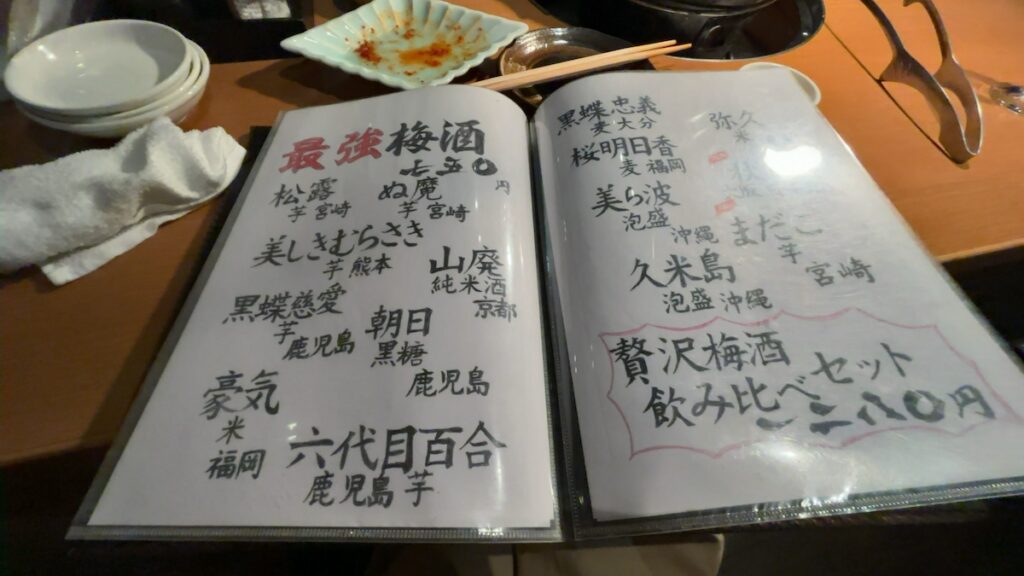 最強梅酒
七五〇円
松露
芋 宮崎
ぬ魔
芋 宮崎
美しきむらさき
芋 熊本
山廃
純米酒
京都
黒蝶慈愛
芋
鹿児島
朝日
黒糖
鹿児島
豪気
米
福岡
六代目百合
鹿児島 芋
黒蝶忠義
麦 大分
弥久
米
桜明日香
麦 福岡
美ら波
泡盛
沖縄
まだこ
芋
宮崎
久米島
泡盛 沖縄
贅沢梅酒
飲み比べセット
一二八〇円